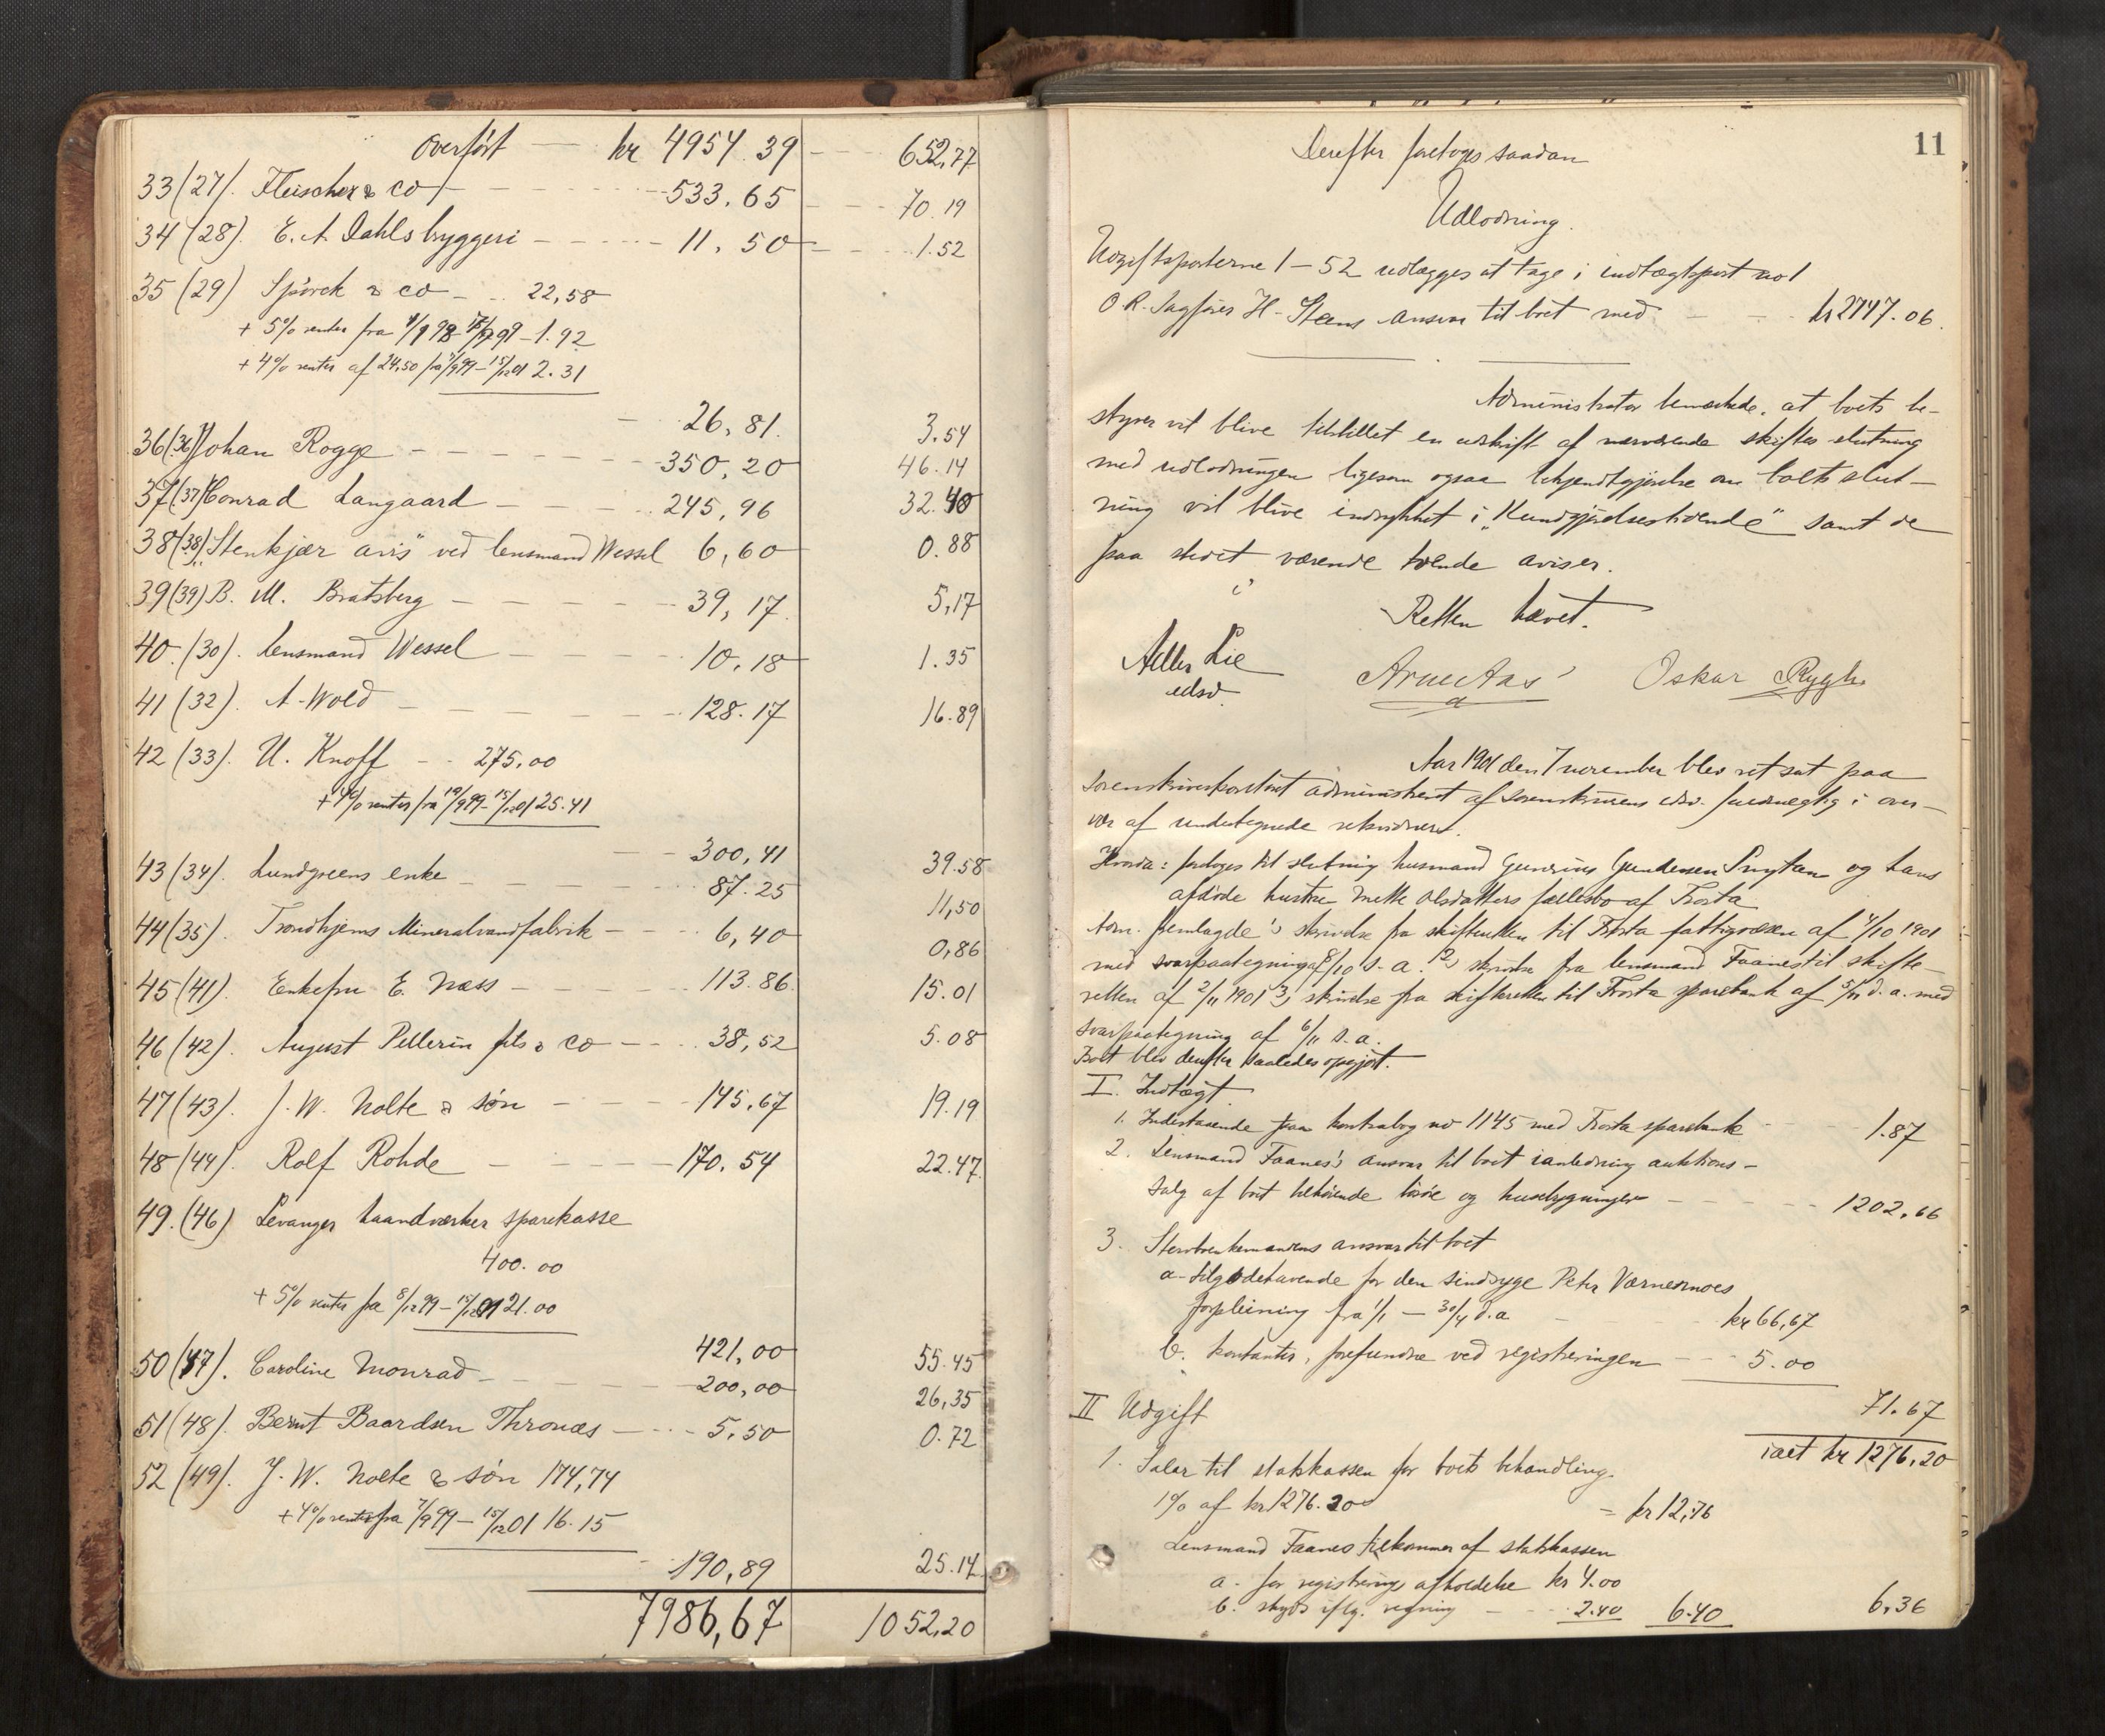 Overført — kr 4954.39 — 652,77
33 (27). Fleischer & co — 533.65 — 70.19
34 (28). E. A Dahls bryggeri — 11,50 — 1.52
35 (29) Spörck & co — 22,58
+ 5% renter fra 1/1 98 — 1.92
+ 4% renter af 24,50 fra 7/9 99 – 15/12 01 2.31
26,81. 3,54
36 (36) Johan Rogge — 350,20 46.14
37 (37) Conrad Langaard — 245,96 32.40
38 (38) "Stenkjær avis" ved lensmand Wessel 6,60 0.88
39 (39) B. M. Bratsberg — 39,17. 5,17
40. (30). Lensmand Wessel — 10,18 1.35
41 (32). A. Wold — 128.17 16.89
42 (33). U. Knoff — 275,00
+ 4% renter fra 19/9 99 – 15/12 01 25.41
300,41 39.58
43 (34). Lundgreens enke — 87.25 11,50
44 (35). Trondhjems Mineralvandfabrik — 6,40 0,86
45 (41). Enkefru E. Næss — 113.86. 15.01
46 (42). August Pellerin fils & co — 38,52 5.08
47 (43). J. W. Nolte & søn — 145,67 19.19
48 (44). Rolf Rohde — 170,54 22.47
49. (46) Levanger haandværker sparekasse
400.00
+ 5% renter fra 8/12 99 – 15/12 01 21.00
421,00 55.45
50 (47). Caroline Monrad — 200,00 26,35
51 (48). Bernt Baardsen Thronæs — 5,50 0.72
52 (49). J. W. Nolte & søn 174,74
+ 4% renter fra 7/9 99 – 15/12 01 16.15
190,89 25.14
7986,67 1052,20
11
Derefter foretoges saadan
Udlodning.
Udgiftsposterne 1 – 52 udlægges at tage i indtægtspost no 1
O. R. Sagfører H. Steens ansvar til boet med — kr 2747.06.
Administrator bemærkede, at boets be-
styrer vil blive tilstillet en udskrift af nærværende skiftes slutning
med udlodningen ligesom ogsaa bekjendtgjørelse om boets slut-
ning vil blive indrykket i "Kundgjørelsestidende" samt de
paa stedet værende tvende aviser.
Retten hævet.
Adler Lie Arne Aas Oskar Rygh
edsv.
Aar 1901 den 7 november blev ret sat paa
sorenskriverkontoret administreret af sorenskriverens edsv. fuldmægtig i over-
vær af undertegnede retsvidner.
Hvorda: foretoges til slutning husmand Gunerius Gundersen og hans
afdøde hustru Mette Olsdatters fællesbo af Frosta
Adm. fremlagde 1) skrivelse fra skifteretten til Frosta fattigvæsen af 4/10 1901
med svarpaategning af 8/10 d. a. 2) skrivelse fra lensmand Faanes til skifte-
retten af 2/11 1901 3) skrivelse fra skifteretten til Frosta sparebank af 5/11 d. a. med
svarpaategning af 6/11 d. a.
Boet blev derefter saaledes opgjort.
I. Indtægt
1. Indestaaende paa kontrabog no 1145 med Frosta sparebank — 1.87
2. Lensmand Faanes's ansvar til boet i anledning auktions-
salg af boet tilhørende løsøre og husebygninger — 1202,66
3. Stervboenkemandens ansvar til boet
a. tilgodehavende for den sindssyge Peter Værnesmoes
forpleining fra 1/1 – 30/4 d. a — kr 66,67
b. kontanter, forefundne ved registreringen — 5.00
71.67
ialt kr 1276,20
II Udgift
1. Salær til statskassen for boets behandling
1% af kr 1276.20 = kr 12,76
Lensmand Faanes tilkommer af statskassen
a. for registrerings afholdelse kr 4.00
b. skyds iflg. regning — 2.40 6.40 6,36